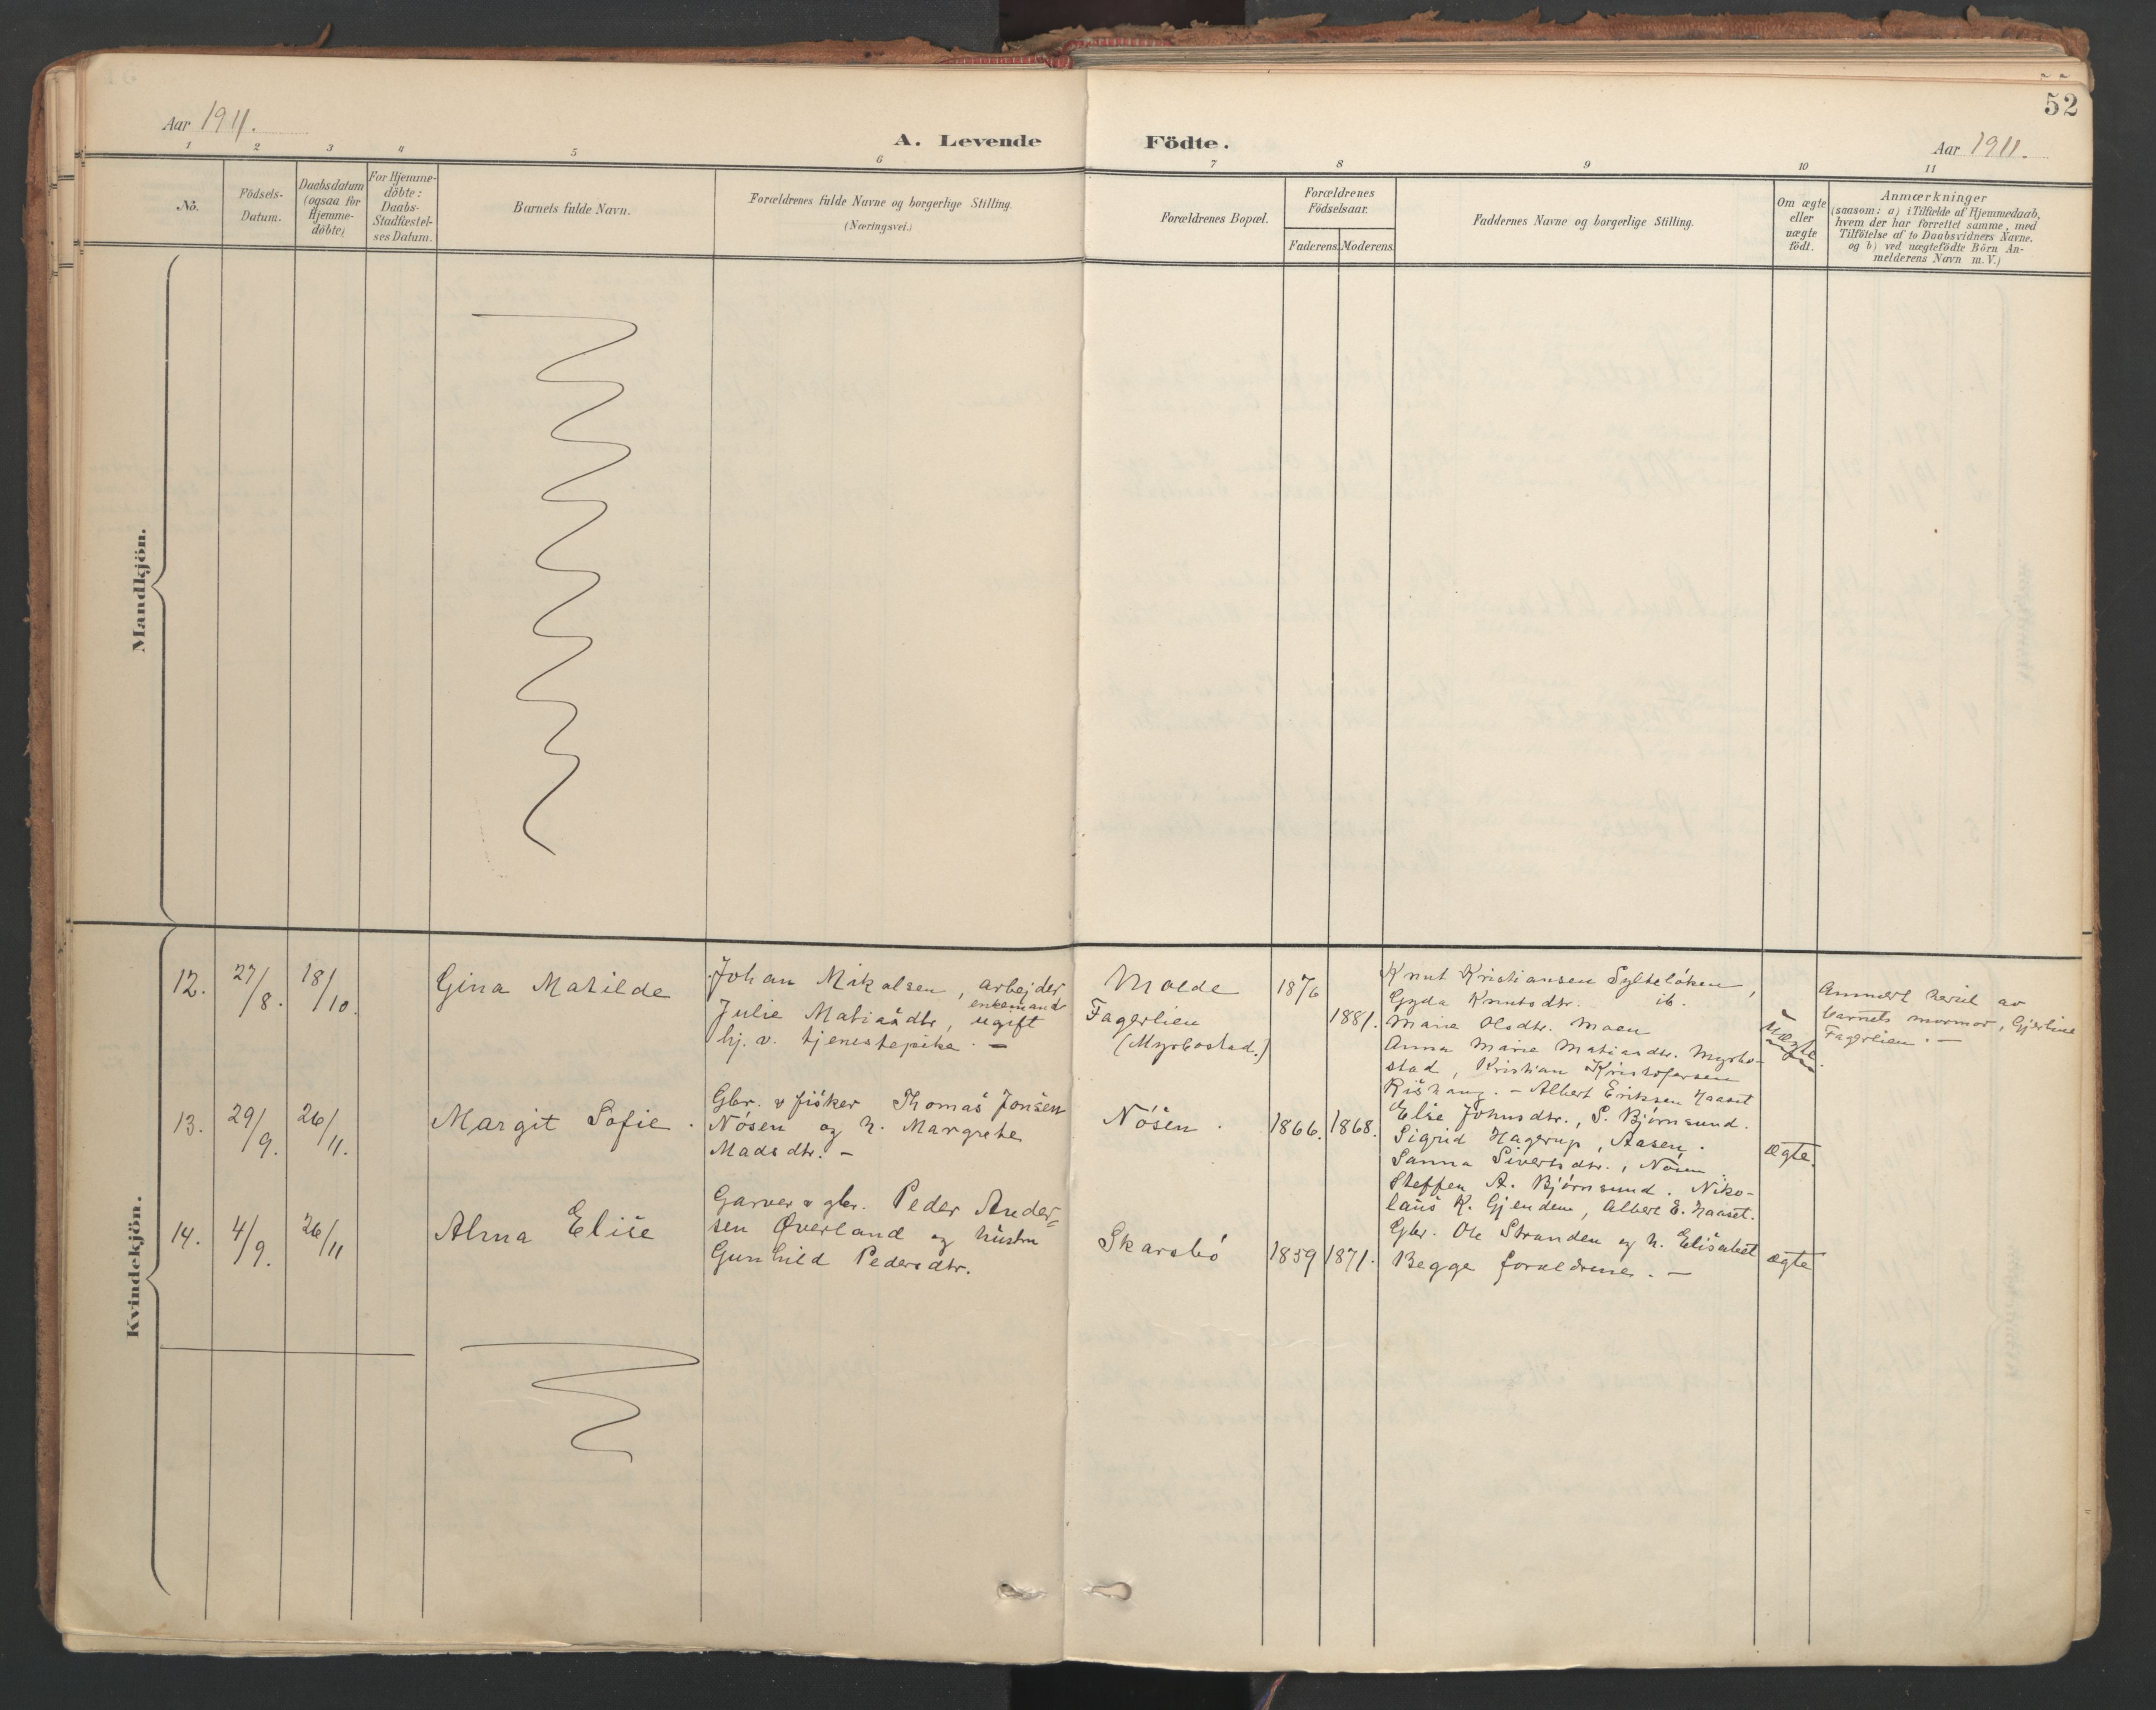 52
Aar 1911.
A. Levende Födte.
Aar 1911.
1 2 3 4 5 6 7 8 9 10 11
No.
Födsels-
Datum.
Daabsdatum
(ogsaa for
Hjemme-
döbte)
For Hjemme-
döbte:
Daabs-
Stadfæstel-
ses Datum.
Barnets fulde Navn.
Forældrenes fulde Navne og borgerlige Stilling.
(Næringsvei.)
Forældrenes Bopæl.
Forældrenes
Födselsaar.
Faderens. Moderens.
Faddernes Navne og borgerlige Stilling.
Om ægte
eller
uægte
födt.
Anmærkninger
(saasom: a) i Tilfælde af Hjemmedaab,
hvem der har forrettet samme, med
Tilföielse af to Daabsvidners Navne,
og b) ved uægtefödte Börn An-
melderens Navn m. V.)
Mandkjön.
Kvindekjön.
12.
27/8.
18/10.
Gina Matilde
Johan Mikalsen, arbejder
enkemand
Julie Matiasdtr, ugift
hj. v. tjenestepike. —
Molde
Fagerlien
(Myrbostad.)
1876
1881.
Knut Kristiansen Sylteløken,
Gyda Knutsdtr. ib.
Marie Olsdtr. Moen
Anna Marie Matiasdtr. Myrbo-
stad, Kristian Kristofersen
Rishaug. —
Uægte.
Anmert hertil av
barnets mormor, Gjertine
Fagerlien. —
13.
29/9.
26/11.
Margit Sofie.
Gbr. & fisker Thomas Jonsen
Nösen og h. Margrete
Madsdtr. —
Nösen.
1866.
1868.
Albert Eriksen Haaset
Else Johnsdtr., S. Bjørnsund.
Sigrid Hagerup, Aasen.
Sanna Sivertsdtr., Nösen.
Steffen A. Bjørnsund. Niko-
laus K. Gjendem, Albert E. Haaset.
ægte.
14.
4/9.
26/11
Alma Elise
Garver & gbr. Peder Ander-
sen Øverland og hustru
Gunhild Pedersdtr.
Skarsbö
1859
1871.
Gbr. Ole Stranden og h. Elisabet
Begge forældrene. —
ægte